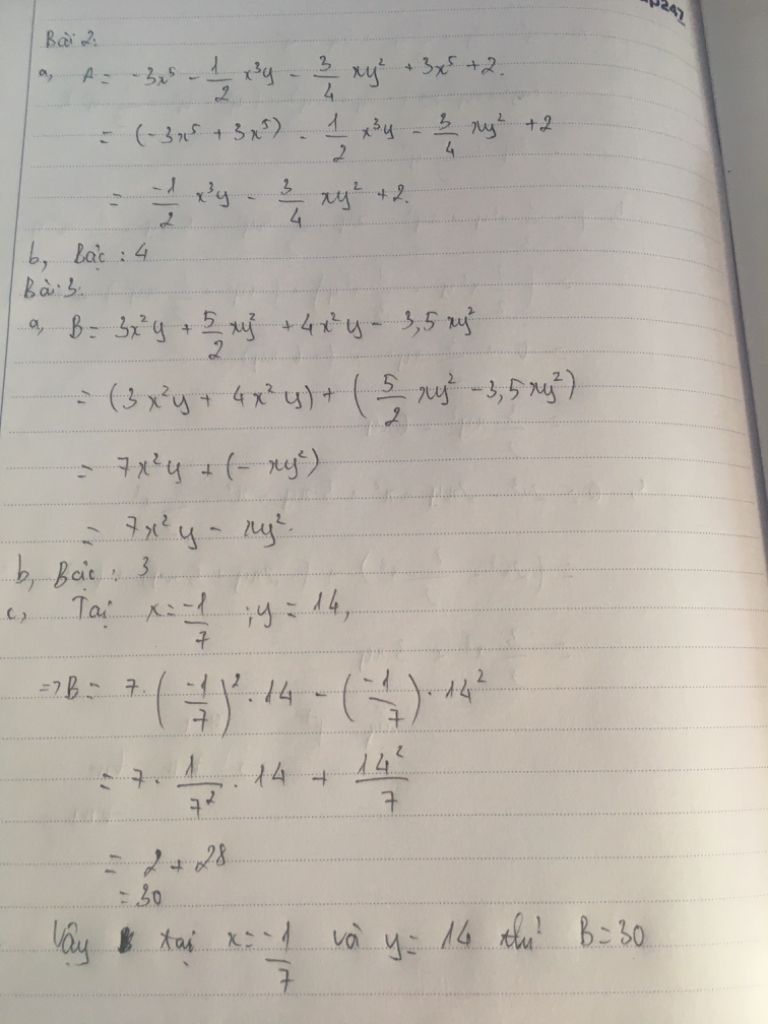 Bài 2:
a, A = -3x⁵ - 1/2 x³y - 3/4 xy² + 3x⁵ + 2.
= (-3x⁵ + 3x⁵) - 1/2 x³y - 3/4 xy² + 2
= -1/2 x³y - 3/4 xy² + 2.
b, Bậc : 4
Bài 3:
a, B = 3x²y + 5/2 xy² + 4x²y - 3,5 xy²
= (3x²y + 4x²y) + (5/2 xy² - 3,5 xy²)
= 7x²y + (- xy²)
= 7x²y - xy².
b, Bậc : 3
c, Tại x = -1/7 ; y = 14,
=> B = 7 . (-1/7)² . 14 - (-1/7) . 14²
= 7 . 1/7² . 14 + 14²/7
= 2 + 28
= 30
Vậy tại x = -1/7 và y = 14 thì B = 30